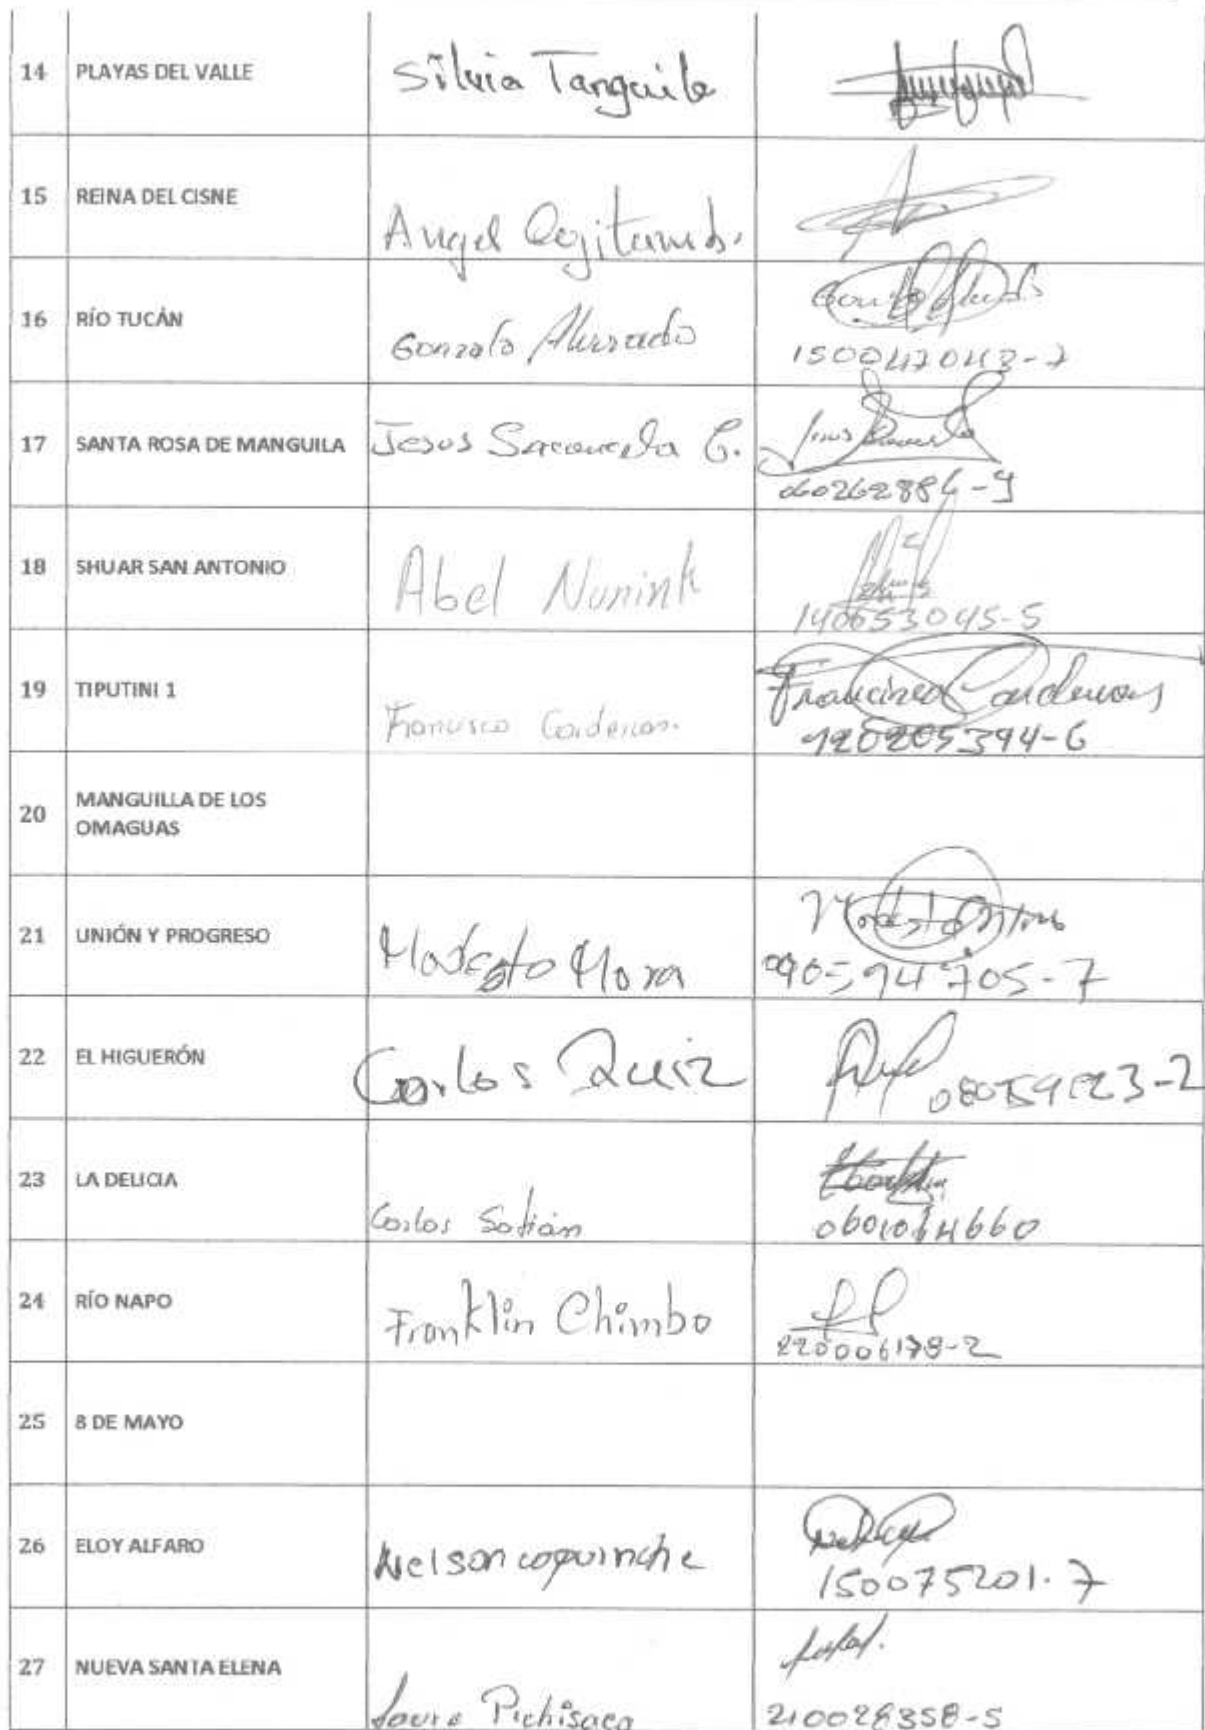 14 PLAYAS DEL VALLE Silvia Tanguila
15 REINA DEL CISNE Angel
16 RÍO TUCÁN Gonzalo Alvarado
150047043-7
17 SANTA ROSA DE MANGUILA Jesus G.
060262886-9
18 SHUAR SAN ANTONIO Abel Nunink
140053045-5
19 TIPUTINI 1 Francisco Cardenas. Francisco Cardenas
120205394-6
20 MANGUILLA DE LOS
OMAGUAS
21 UNIÓN Y PROGRESO Modesto Mora
22 EL HIGUERÓN Carlos Ruiz
23 LA DELICIA Carlos
0601064660
24 RÍO NAPO Franklin Chimbo
220006178-2
25 8 DE MAYO
26 ELOY ALFARO Nelson coquinche
150075201-7
27 NUEVA SANTA ELENA Laura Pichisaca
210028358-5